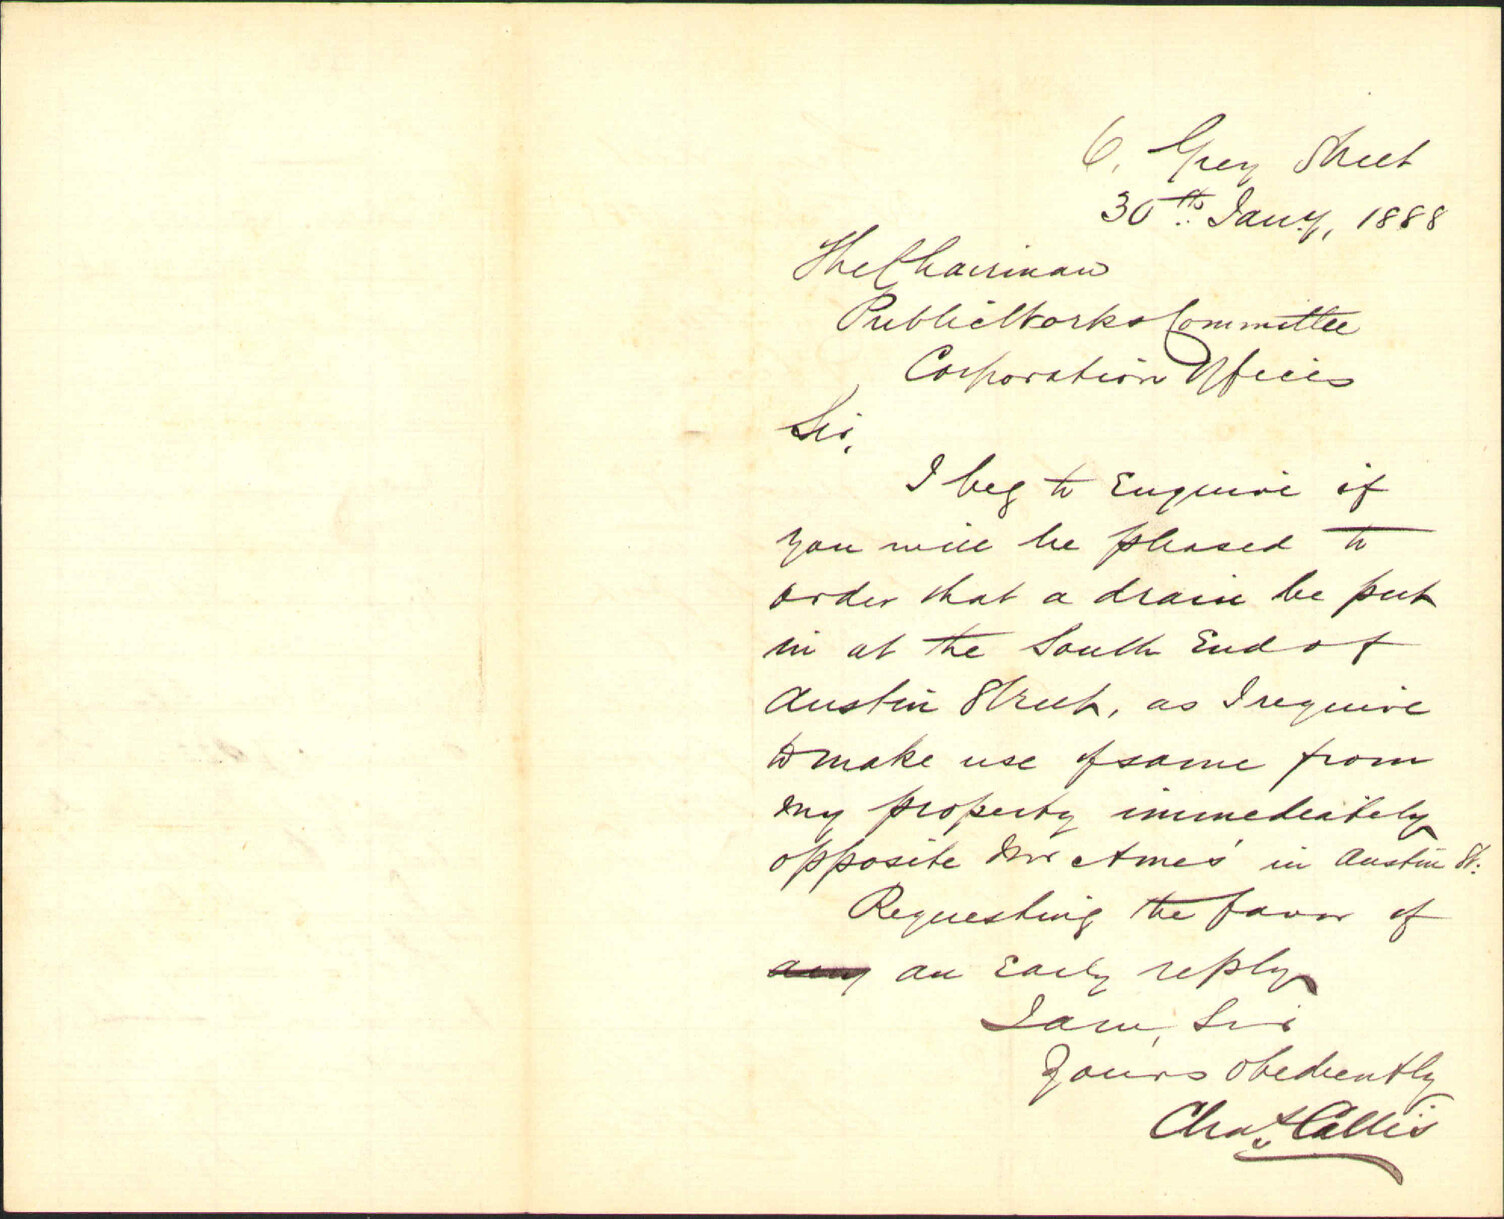 6, Grey Street
30th Jany, 1888
The Chairman
Public Works Committee
Corporation Offices
Sir,
I beg to Enquire if
you will be pleased to
order that a drain be put
in at the South End of
Austin Street, as I require
to make use of same from
my property immediately
opposite Mr Ames' in Austin St.
Requesting the favor of
any an Early reply
I am, Sir
Yours obediently
Chas Callis